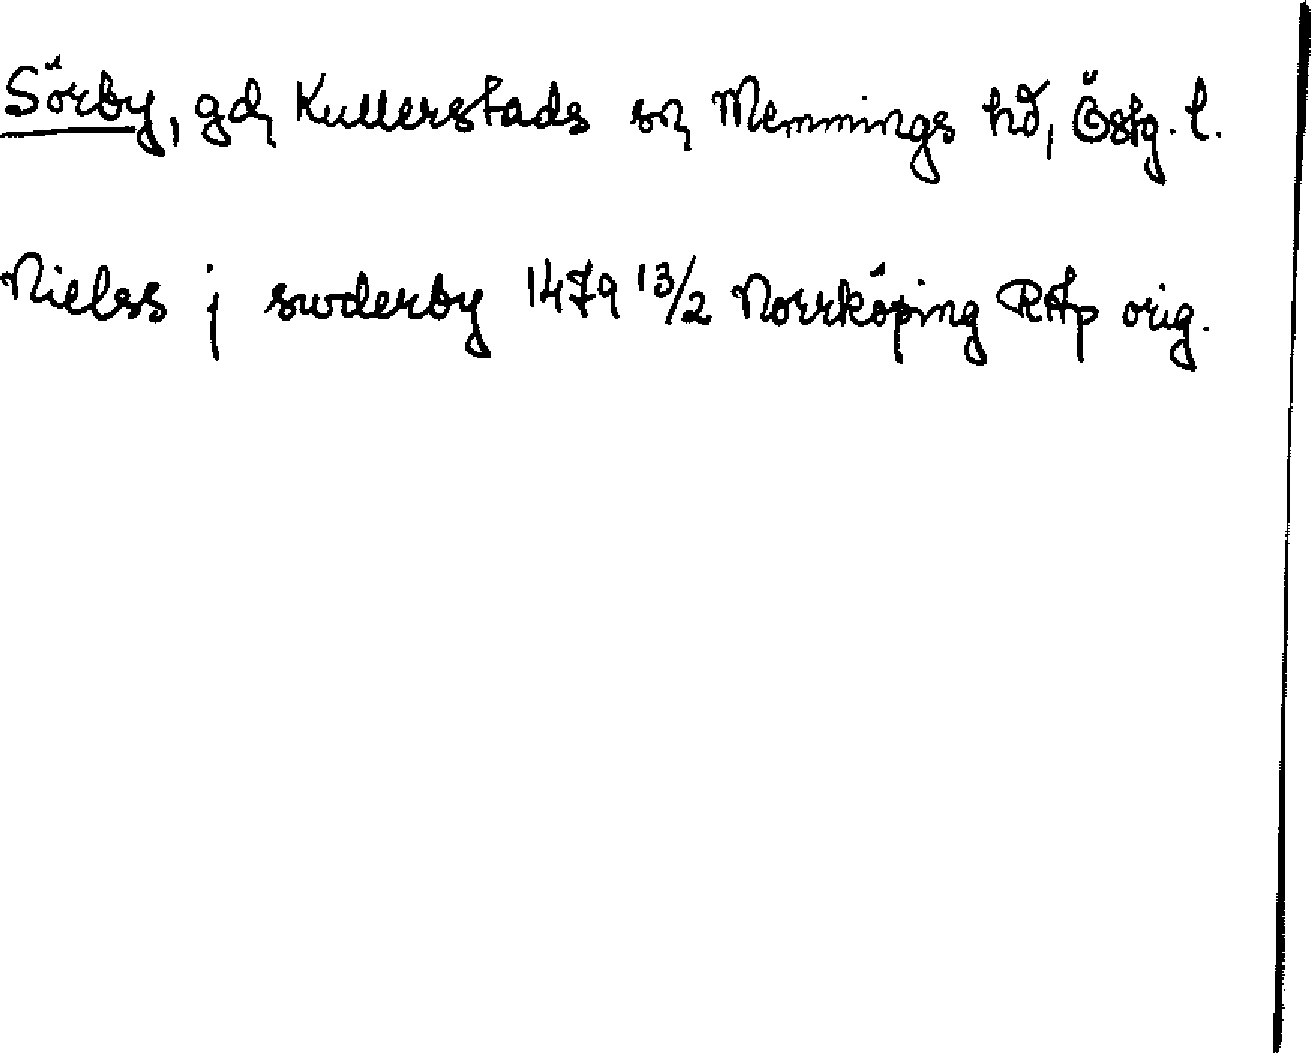 Sörby, gd, Kullerstads sn, Memmings hd, Östg. l.
Nielss j swderby 1479 13/2 Norrköping RAp orig.